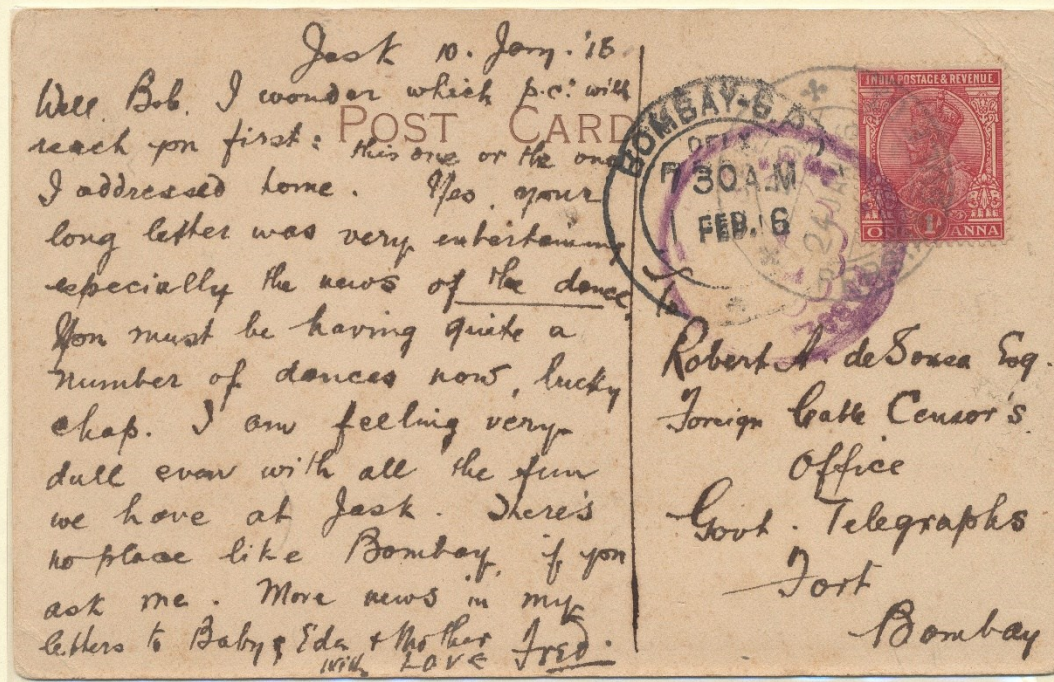 Jask 10. Jany. '16
Well Bob. I wonder which p.c. will
POST CARD
reach you first: this one or the one
I addressed home. Yes your
long letter was very entertaining
especially the news of the dance.
You must be having quite a
number of dances now, lucky
chap. I am feeling very
dull even with all the fun
we have at Jask. There's
no place like Bombay, if you
ask me. More news in my
letters to Baby, Eda & Mother
with Love Fred.
INDIA POSTAGE & REVENUE
ONE 1 ANNA
BOMBAY-G.P.O
7 30 A.M
FEB. 16
24 JA
Robert A. deSousa Esq.
Foreign Cable Censor's
Office
Govt. Telegraphs
Fort
Bombay